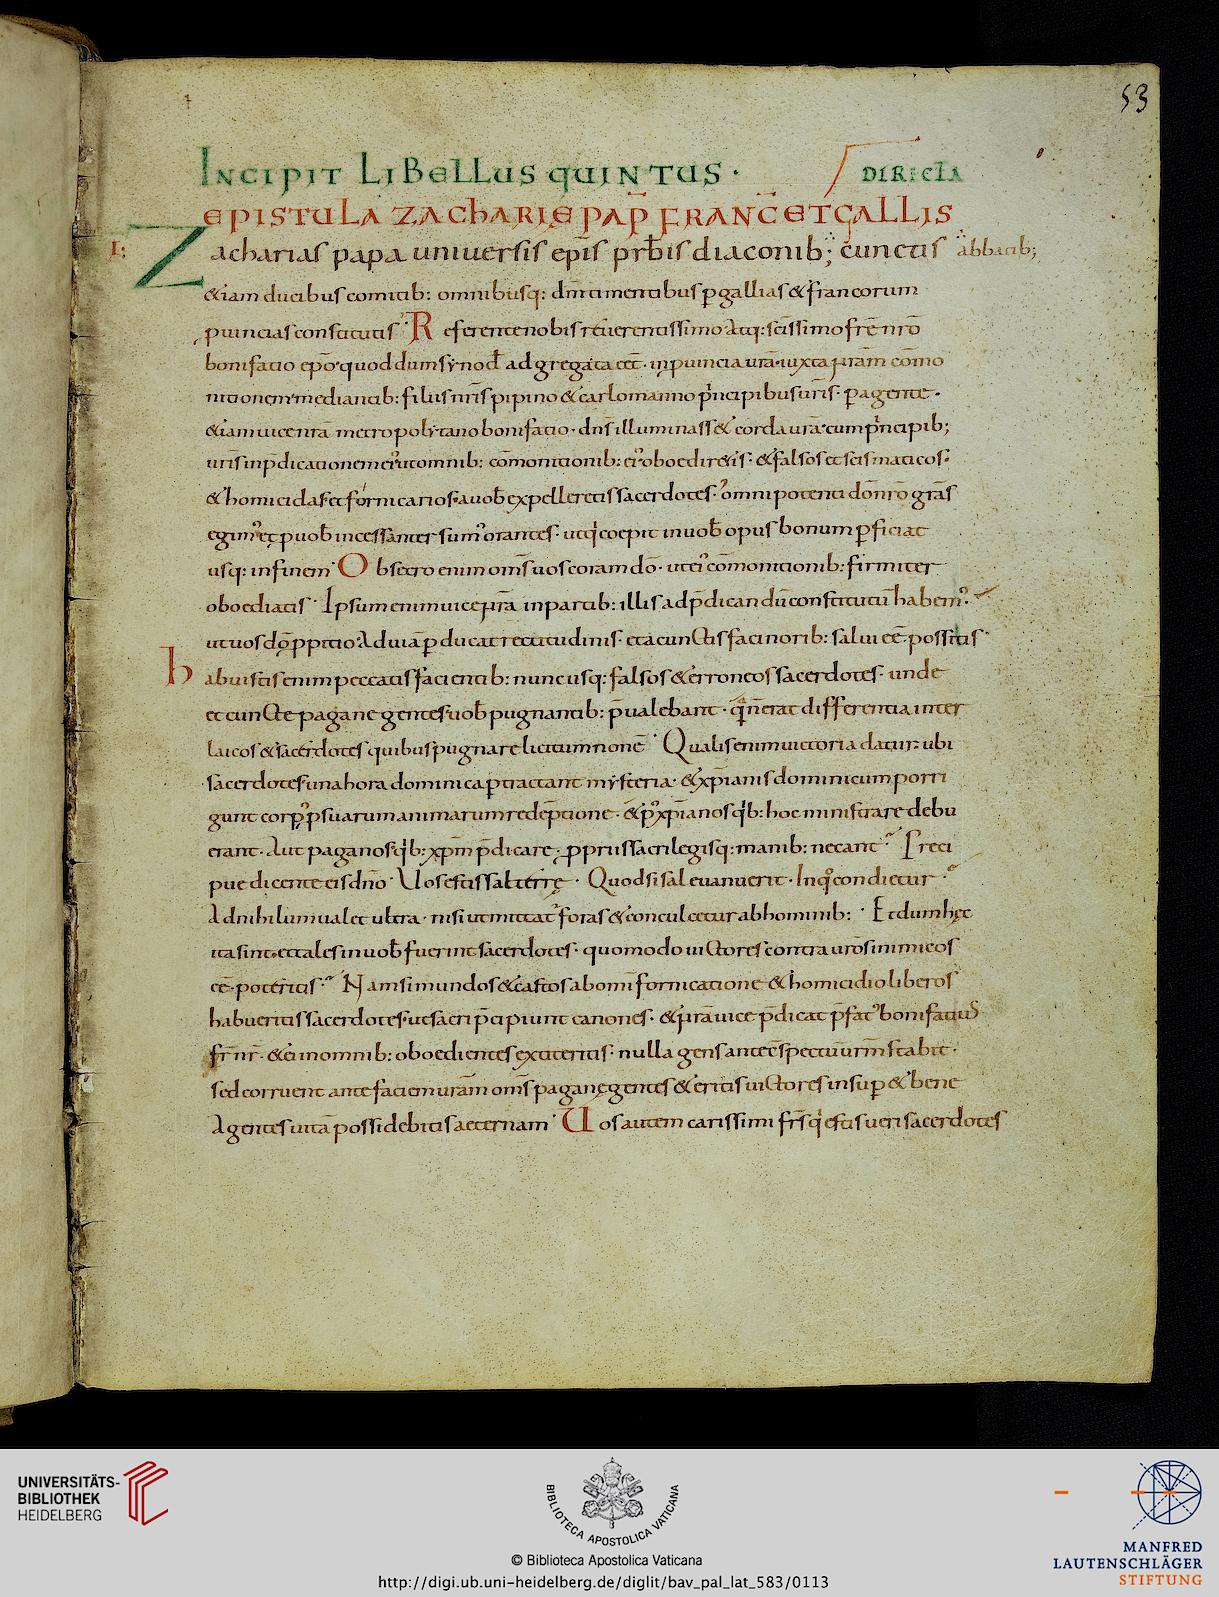 53
INCIPIT LIBELLUS QUINTUS · DIRECTA
EPISTULA ZACHARIE PAP̄ FRANC̄ ET GALLIS
I; Zacharias papa universis ep̄is prb̄is diaconib; cunctis abbatib;
&iam ducibus comitib: omnibusq: dm̄ timentibus p̱ gallias & francorum
puincias constitutis · Referente nobis reverentissimo atq: sc̄issimo fr̄e nr̄o
bonifatio ep̄o quod dum synod̄ adgregata eēt · in puincia ur̄a iuxta nr̄am com̄o
nitionem mediantib: filiis nr̄is pipino & carlomanno principibus ur̄is · p̱agente ·
&iam uice nr̄a metropolytano bonifatio · dn̄s illuminass& corda ur̄a cum principib;
ur̄is in p̄dicationem ei' ut omnib: com̄onitionib: ei' oboedir&is · & falsos et scismaticos
& homicidas et fornicarios a uob̄ expelleretis sacerdotes · omnipotenti dō nr̄o gr̄as
egim' et p uob̄ incessanter sum' orantes · ut qui coepit in uob̄ opus bonum p̱ficiat
usq: in finem · Obsecro enim om̄s uos coram dō · ut ei' com̄onitionib: firmiter
oboediatis · Ipsum enim uice nr̄a in partib: illis ad p̄dicandū constitutū habem'
ut uos dō p̱pitio ad uiā p̱ducat rectitudinis · et a cunctis facinorib: salui eē possitis ·
habuistis enim peccatis facientib: nunc usq: falsos & erroneos sacerdotes · unde
et cuncte pagane gentes uob̄ pugnantib: p̄ualebant · quia n̄ erat differentia inter
laicos & sacerdotes quibus pugnare licitum non ē · Qualis enim uictoria datur ubi
sacerdotes una hora dominica p̱tractant mysteria · & xp̄ianis dominicum porri
gunt corp' p suarum animarum redēptione · & p' xp̄ianos qib: hoc ministrare debu
erant · Aut paganos qib: xp̄m p̄dicare · p̱priis sacrilegisq: manib: necant · Preci
pue dicente eis dn̄o · Uos estis sal terrę · Quod si sal euanuerit · In quo condietur ·
Ad nihilum ualet ultra · nisi ut mittat' foras & conculcetur ab hominib: · Et dum hęc
ita sint et tales in uob̄ fuerint sacerdotes · quomodo uictores contra ur̄os inimicos
eē poteritis · Nam si mundos & castos ab om̄i fornicatione & homicidio liberos
habueritis sacerdotes ut sacri p̄cipiunt canones · & nr̄a uice p̄dicat p̄fat' bonifatius
fr̄ nr̄ · & ei in omnib: oboedientes extiteritis · nulla gens ante c̄spectū ur̄m stabit ·
sed corruent ante faciem ur̄am om̄s paganę gentes & eritis uictores insup̱ & bene
Agentes uitā possidebitis aeternam · Uos autem carissimi fr̄s qui estis ueri sacerdotes
UNIVERSITÄTS-
BIBLIOTHEK
HEIDELBERG
BIBLIOTECA APOSTOLICA VATICANA
© Biblioteca Apostolica Vaticana
http://digi.ub.uni-heidelberg.de/diglit/bav_pal_lat_583/0113
MANFRED
LAUTENSCHLÄGER
STIFTUNG